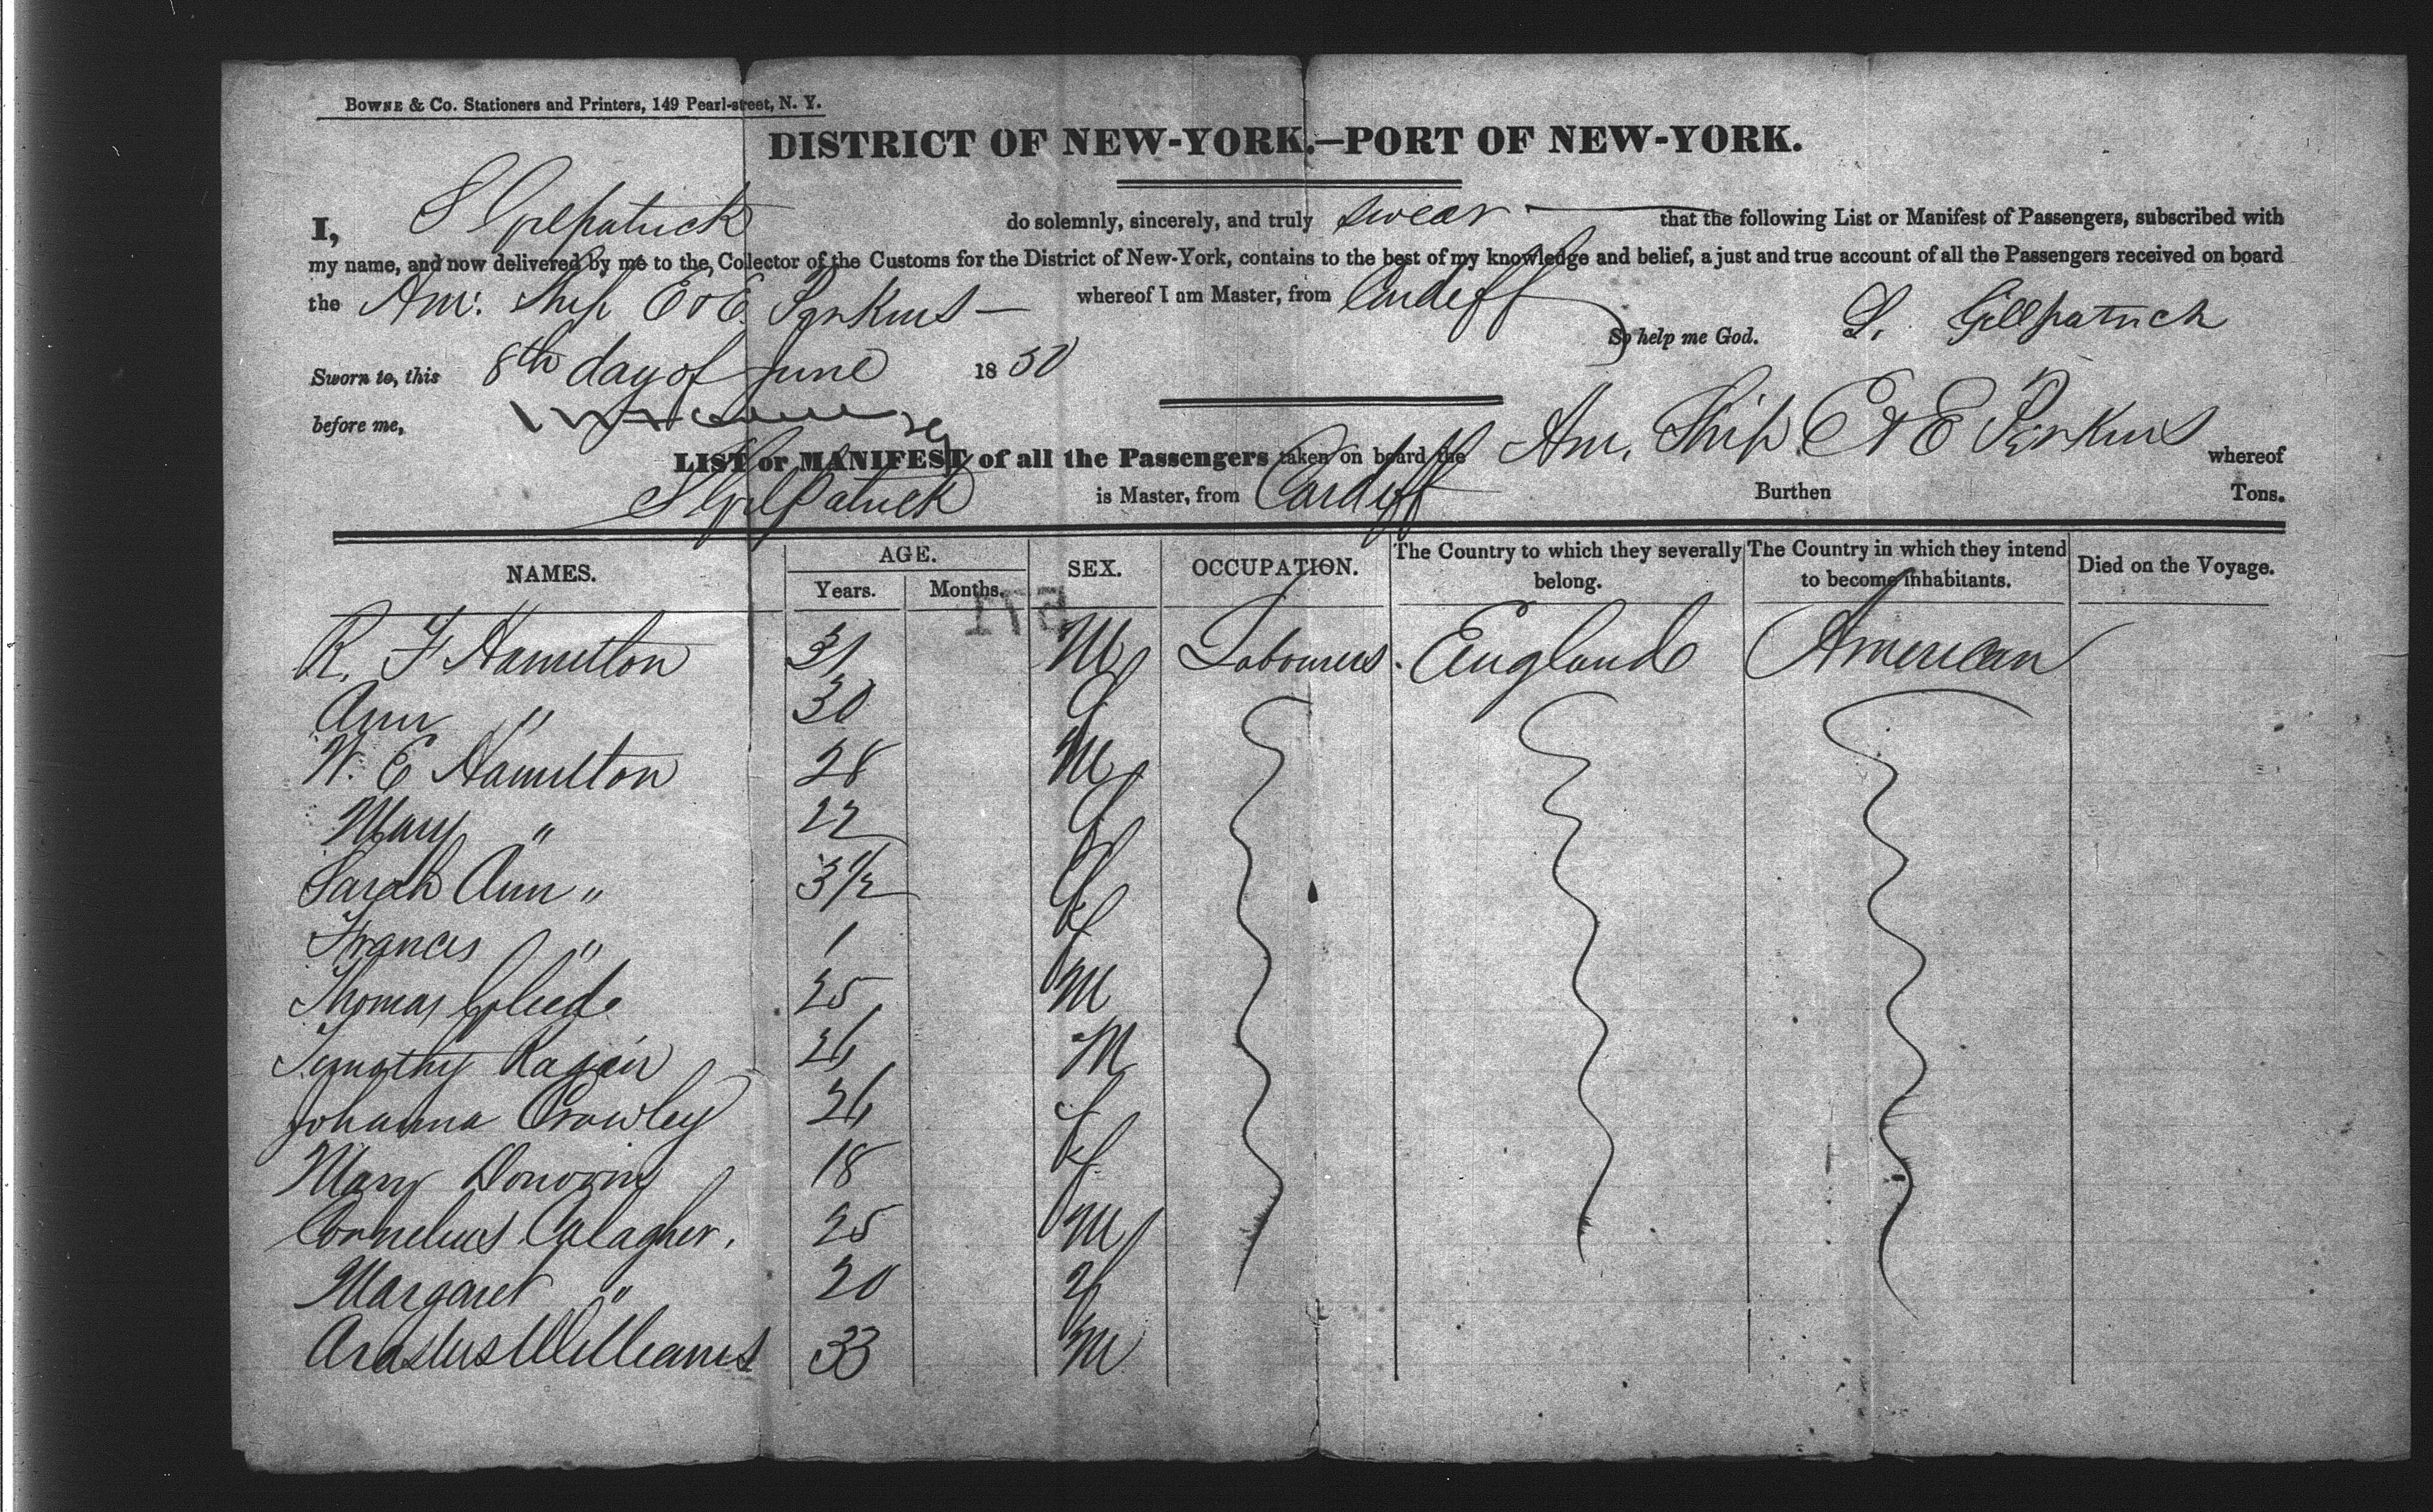 BOWNE & Co. Stationers and Printers, 149 Pearl-street, N. Y.
DISTRICT OF NEW-YORK.—PORT OF NEW-YORK.
I, S Gilpatrick do solemnly, sincerely, and truly swear that the following List or Manifest of Passengers, subscribed with
my name, and now delivered by me to the Collector of the Customs for the District of New-York, contains to the best of my knowledge and belief, a just and true account of all the Passengers received on board
the Am: Ship E & E Perkins — whereof I am Master, from Cardiff
So help me God. S. Gillpatrick
Sworn to, this 8th day of June 1850
before me,
LIST or MANIFEST of all the Passengers taken on board the Am. Ship E & E Perkins whereof
S Gilpatrick is Master, from Cardiff Burthen Tons.
NAMES. AGE. Years. Months. SEX. OCCUPATION. The Country to which they severally belong. The Country in which they intend to become inhabitants. Died on the Voyage.
571
R. F Hamilton 31 M Labourers. England American
Ann " 30 f
W. E Hamilton 28 M
Mary " 22 f
Sarah Ann " 3 1/2 f
Francis " 1 f
Thomas 25 M
Timothy Ragan 26 M
Johanna Crowley 26 f
Mary Donovin 18 f
Cornelius Calagher. 25 M
Margaret " 20 f
Arastus Williams 33 M